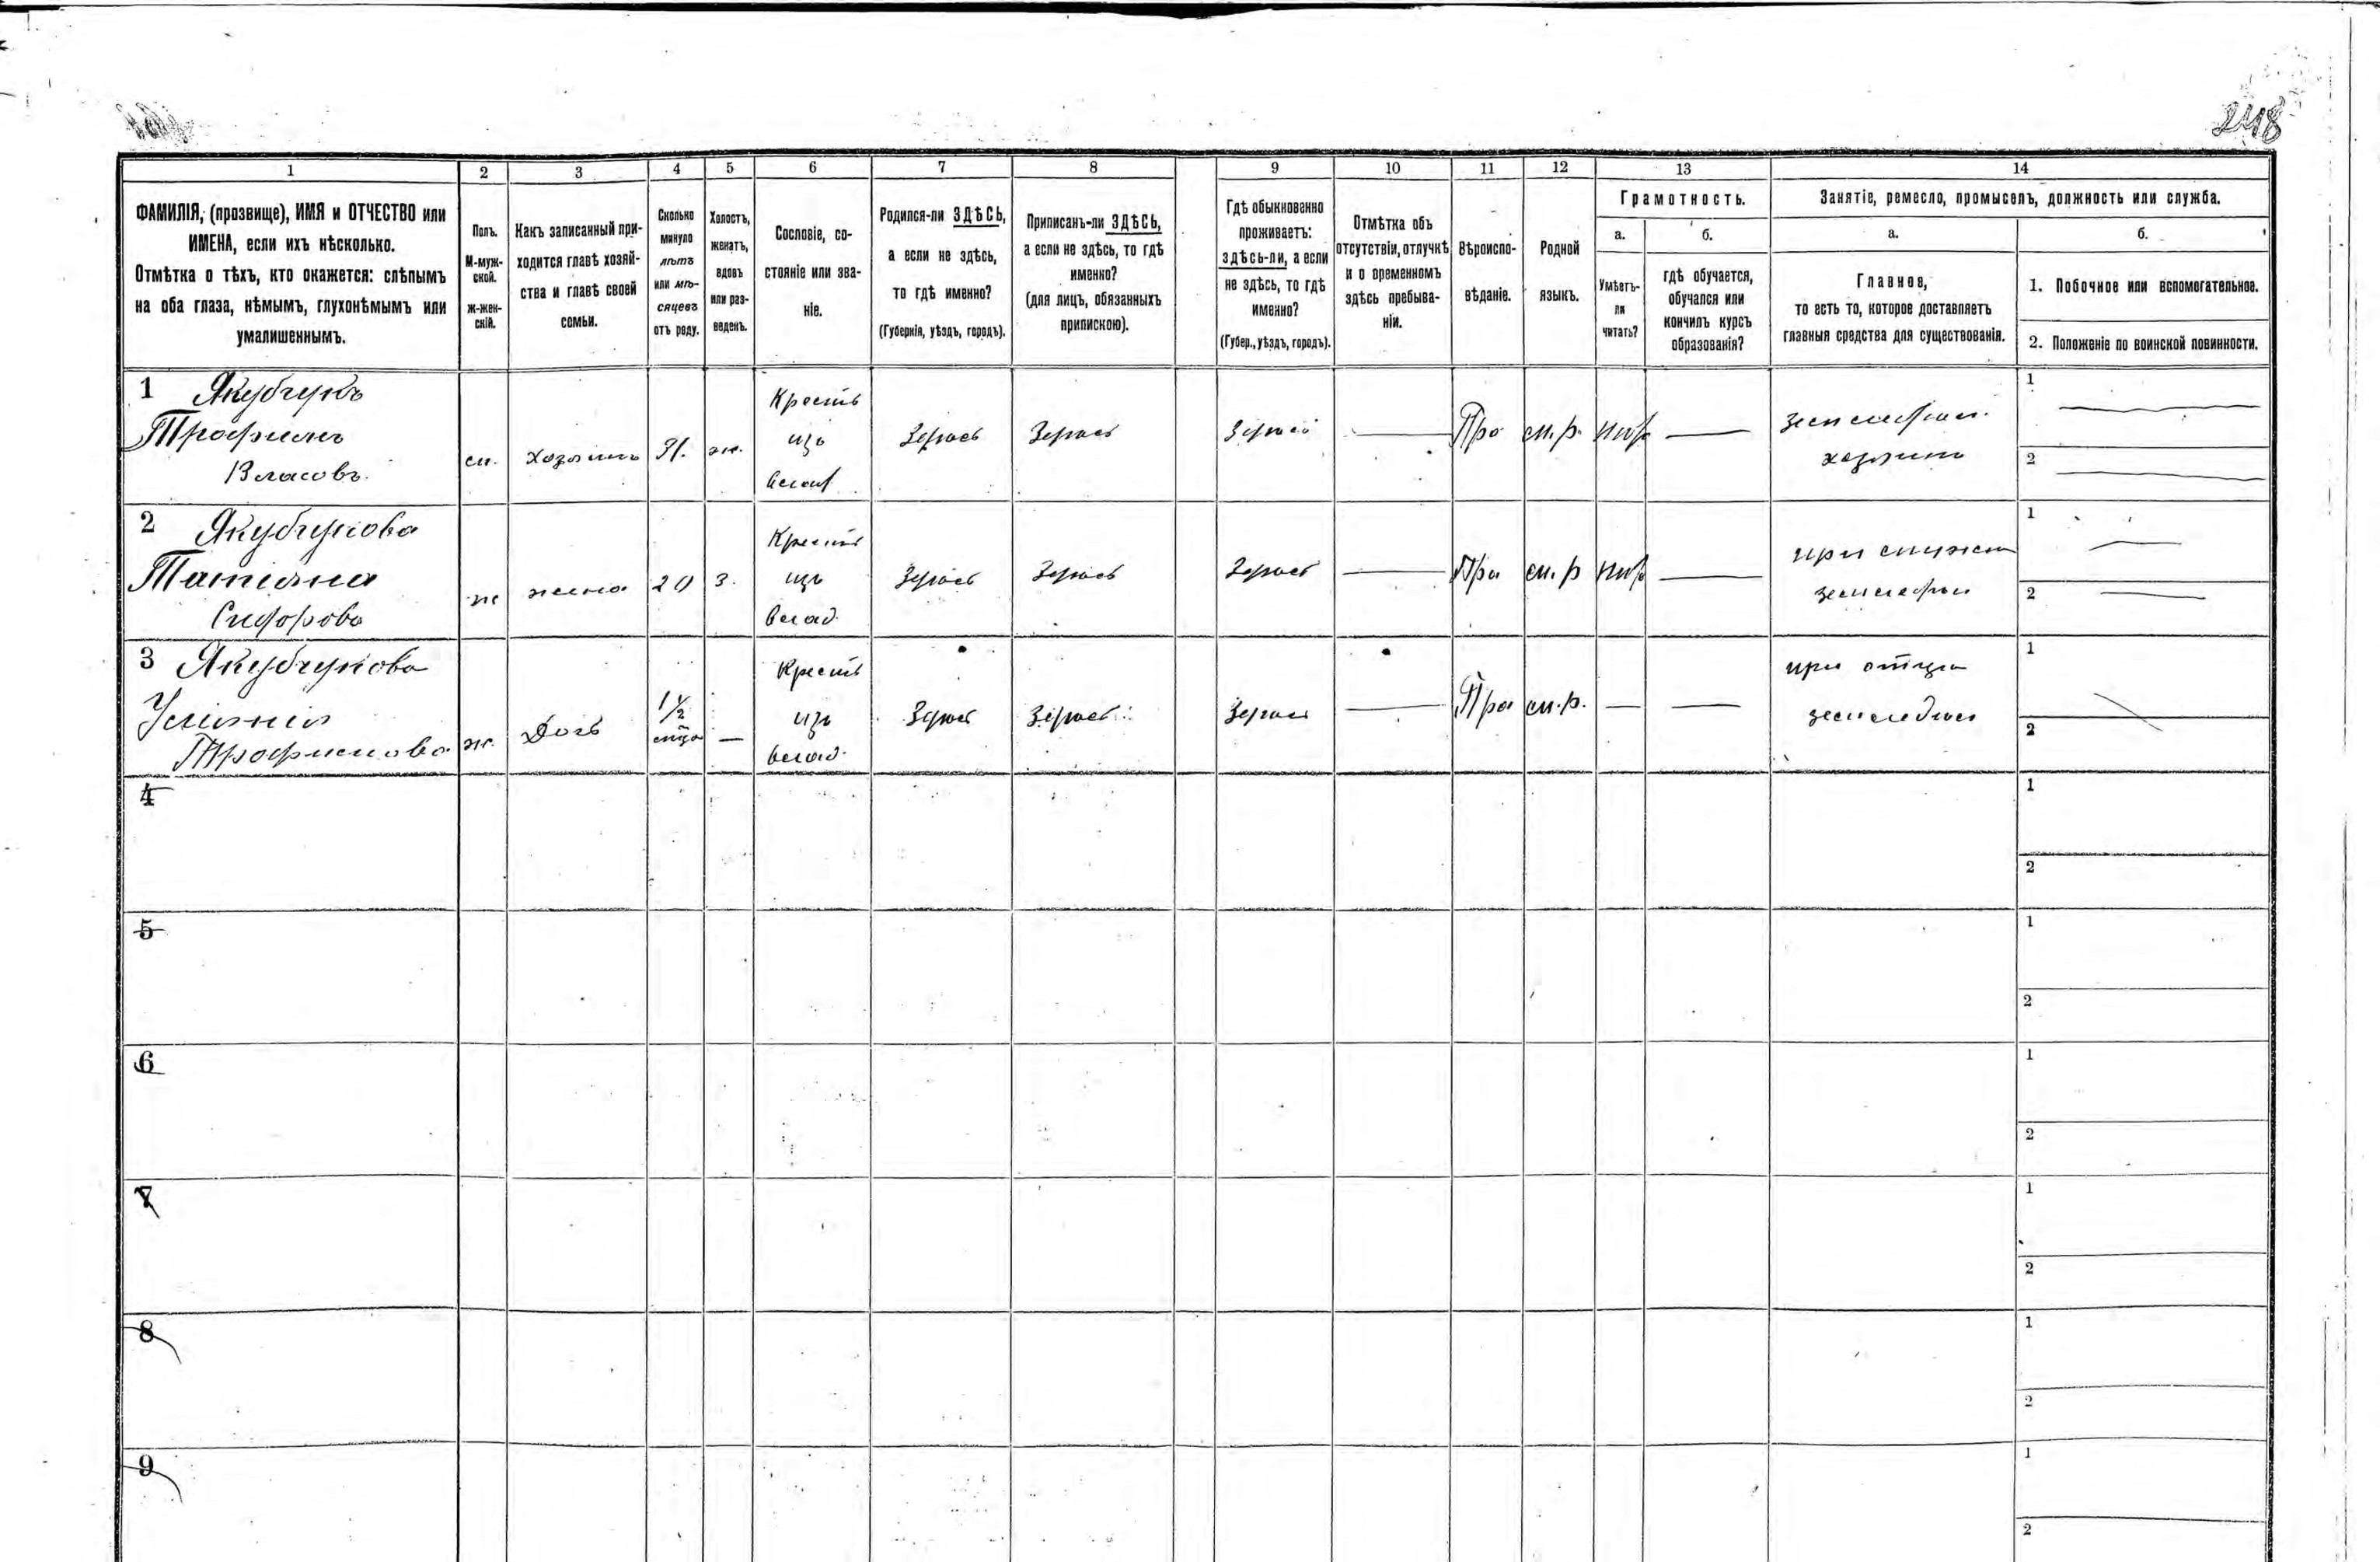 248
1
2
3
4
5
6
7
8
9
10
11
12
13
14
ФАМИЛІЯ, (прозвище), ИМЯ и ОТЧЕСТВО или
ИМЕНА, если ихъ нѣсколько.
Отмѣтка о тѣхъ, кто окажется: слѣпымъ
на оба глаза, нѣмымъ, глухонѣмымъ или
умалишеннымъ.
Полъ.
М-муж-
ской.
ж-жен-
скій.
Какъ записанный при-
ходится главѣ хозяй-
ства и главѣ своей
семьи.
Сколько
минуло
лѣтъ
или мѣ-
сяцевъ
отъ роду.
Холостъ,
женатъ,
вдовъ
или раз-
веденъ.
Сословіе, со-
стояніе или зва-
ніе.
Родился-ли ЗДѢСЬ,
а если не здѣсь,
то гдѣ именно?
(Губернія, уѣздъ, городъ).
Приписанъ-ли ЗДѢСЬ,
а если не здѣсь, то гдѣ
именно?
(для лицъ, обязанныхъ
припискою).
Гдѣ обыкновенно
проживаетъ:
здѣсь-ли, а если
не здѣсь, то гдѣ
именно?
(Губер., уѣздъ, городъ).
Отмѣтка объ
отсутствіи, отлучкѣ
и о временномъ
здѣсь пребыва-
ніи.
Вѣроиспо-
вѣданіе.
Родной
языкъ.
Грамотность.
а.
Умѣетъ-
ли
читать?
б.
гдѣ обучается,
обучался или
кончилъ курсъ
образованія?
Занятіе, ремесло, промыселъ, должность или служба.
а.
Главное,
то есть то, которое доставляетъ
главныя средства для существованія.
б.
1. Побочное или вспомогательное.
2. Положеніе по воинской повинности.
1 Якубчукъ
Трофимъ
Власовъ.
м.
хозяинъ
31.
ж.
Крестъ
изъ
влад
Здѣсь
Здѣсь
Здѣсь
Пра
м.р.
нѣт
земледѣл.
хозяинъ
1
2
2 Якубчукова
Татіяна
Сидорова
ж
жена
20
з.
Крестъ
изъ
влад.
Здѣсь
Здѣсь
Здѣсь
Пра
м.р
нѣт
при мужѣ
земледѣл
1
2
3 Якубчукова
Уліянія
Трофимова
ж.
Дочь
1 1/2
мца
Крестъ
изъ
влад.
Здѣсь
Здѣсь
Здѣсь
Пра
м.р.
при отцѣ
земледѣл
1
2
4
1
2
5
1
2
6
1
2
7
1
2
8
1
2
9
1
2